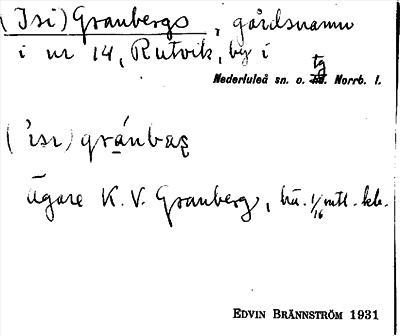 (Isi) Granbergs, gårdsnamn
i nr 14, Rutvik, by i
Nederluleå sn. o. tg Norrb. l.
('isi) gránbaṣ
Ägare K. V. Granberg, 1/16 mtl. kb.
EDVIN BRÄNNSTRÖM 1931